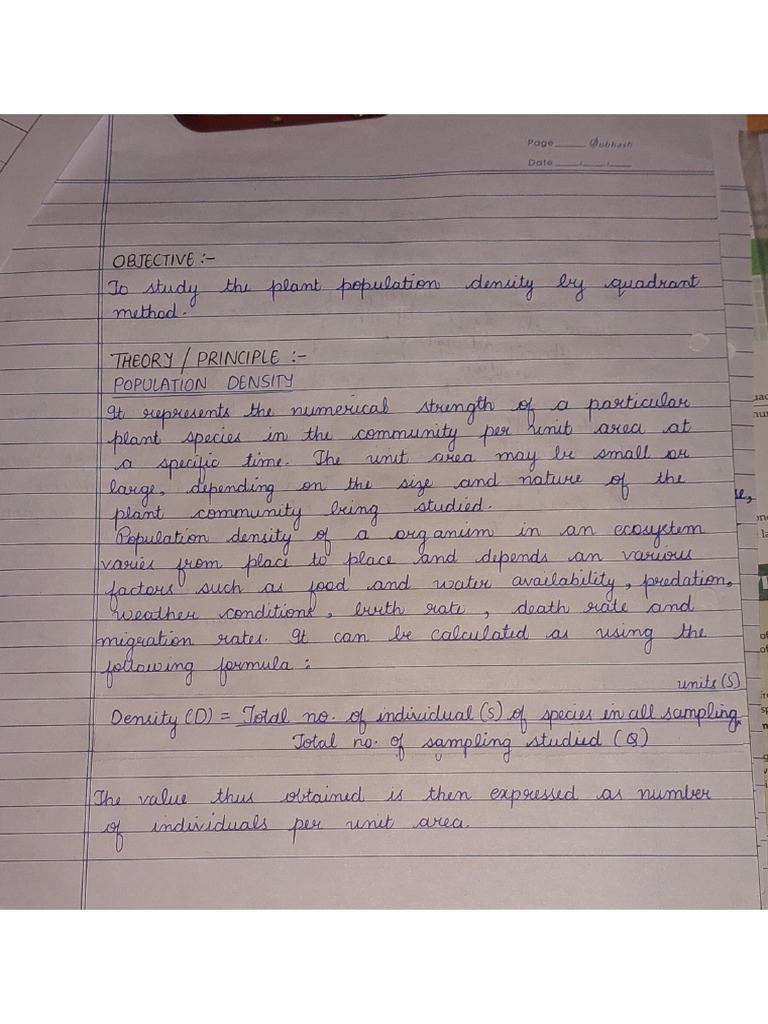 Page Subhash
Date / /
OBJECTIVE :-
To study the plant population density by quadrant
method.
THEORY / PRINCIPLE :-
POPULATION DENSITY
It represents the numerical strength of a particular
plant species in the community per unit area at
a specific time. The unit area may be small or
large, depending on the size and nature of the
plant community being studied.
Population density of a organism in an ecosystem
varies from place to place and depends an various
factors such as food and water availability, predation,
weather conditions, birth rate, death rate and
migration rates. It can be calculated as using the
following formula :
units (S)
Density (D) = Total no. of individual (S) of species in all sampling
Total no. of sampling studied (Q)
The value thus obtained is then expressed as number
of individuals per unit area.